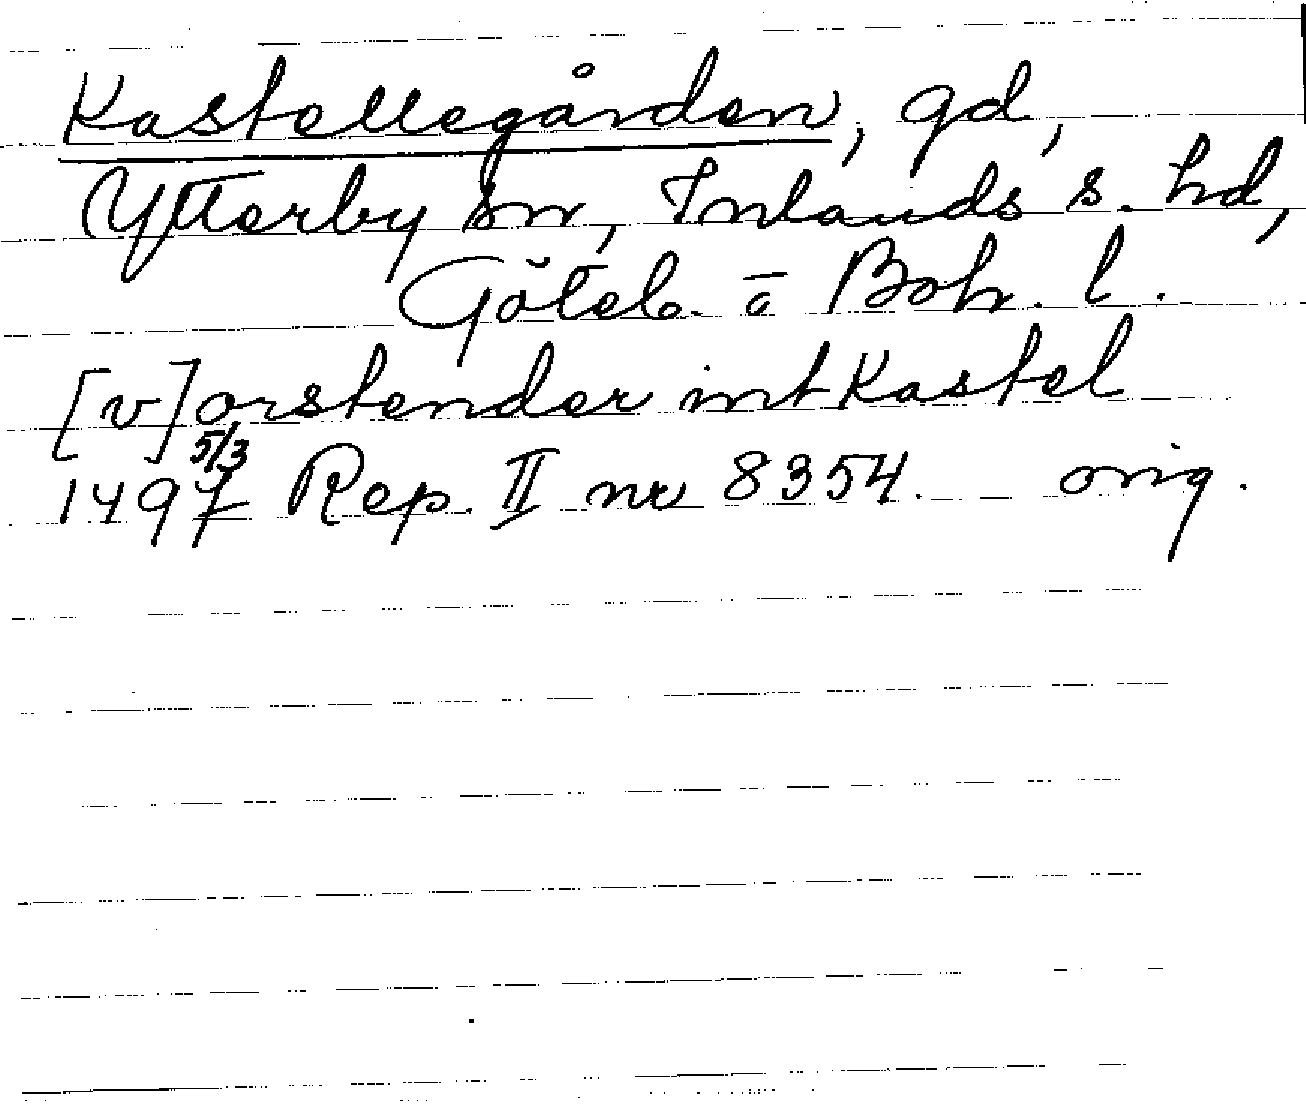 Kastellegården, gd,
Ytterby sn, Inlands s. hd,
Göteb. o Boh. l.
[v]orstender int Kastel
5/3
1497 Rep. II nr 8354. orig.